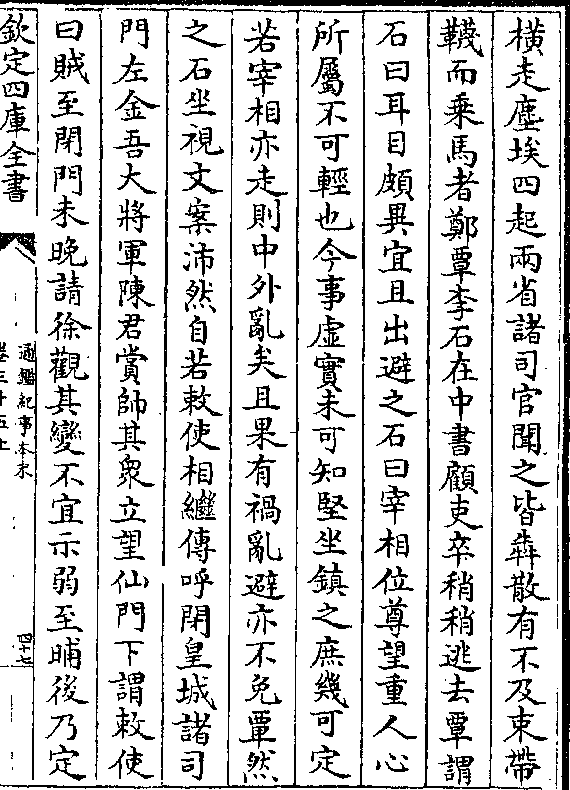 橫走塵埃四起兩省諸司官聞之皆犇散有不及束帶
韈而乗馬者鄭覃李石在中書顧吏卒稍稍逃去覃謂
石曰耳目頗異宜且出避之石曰宰相位尊望重人心
所屬不可輕也今事虛實未可知堅坐鎮之庶幾可定
若宰相亦走則中外亂矣且果有禍亂避亦不免覃然
之石坐視文案沛然自若敕使相繼傳呼閉皇城諸司
門左金吾大將軍陳君賞帥其衆立望仙門下謂敕使
曰賊至閉門未晚請徐觀其變不宜示弱至晡後乃定
欽定四庫全書
通鑑紀事本末
卷三十五上
四十七